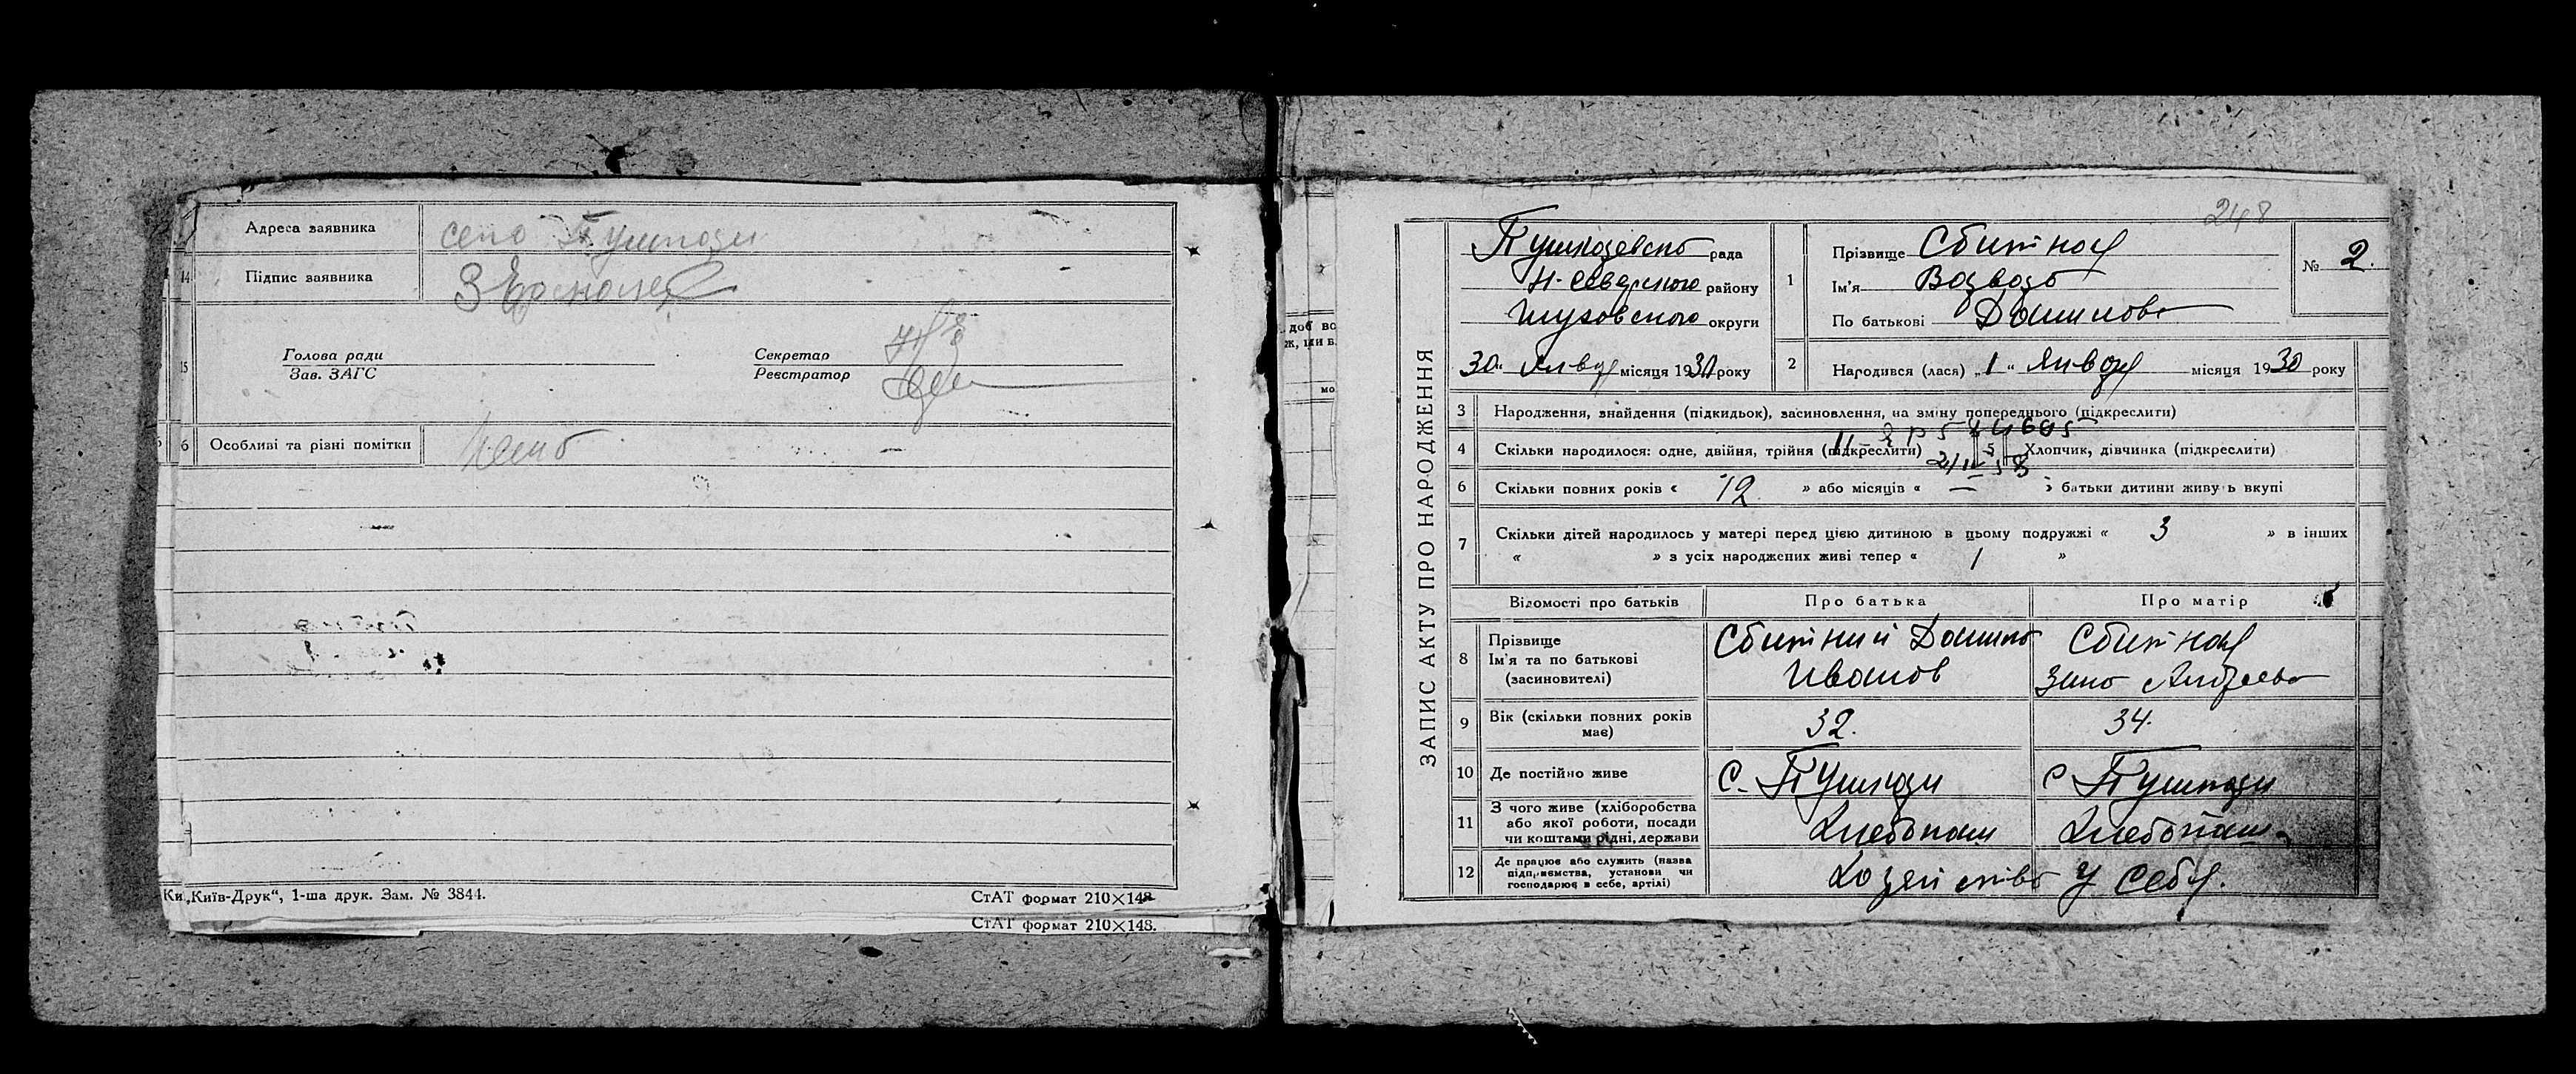 Адреса заявника село Пушкари
14 Підпис заявника
15 Голова ради
Зав. ЗАГС
Секретар
Реєстратор
6 Особливі та різні помітки
Ки „Київ-Друк“, 1-ша друк. Зам. № 3844.
СтАТ формат 210×148
СтАТ формат 210×148.
248
ЗАПИС АКТУ ПРО НАРОДЖЕННЯ
рада
Н-Северского району
округи
30 „ Январ місяця 1930 року
1 Прізвище Сбитная
Ім'я
По батькові Данилова
№ 2.
2 Народився (лася) „ 1 “ Января місяця 1930 року
3 Народження, знайдення (підкидьок), засиновлення, на зміну попереднього (підкреслити)
4 Скільки народилося: одне, двійня, трійня (підкреслити) 5 Хлопчик, дівчинка (підкреслити)
6 Скільки повних років « 12 » або місяців « — » батьки дитини живуть вкупі
7 Скільки дітей народилось у матері перед цією дитиною в цьому подружжі « 3 » в інших
« » з усіх народжених живі тепер « 1 »
Відомості про батьків Про батька Про матір
8 Прізвище
Ім'я та по батькові
(засиновителі)
Сбитний Данило
Иванов
Сбитная
Зина Андреева
9 Вік (скільки повних років
має)
32. 34.
10 Де постійно живе с. Пушкари с Пушкари
11 З чого живе (хліборобства
або якої роботи, посади
чи коштами рідні, держави
Хлебопаш Хлебопаш.
12 Де працює або служить (назва
підприємства, установи чи
господарює в себе, артілі)
Хозяйство у себя.